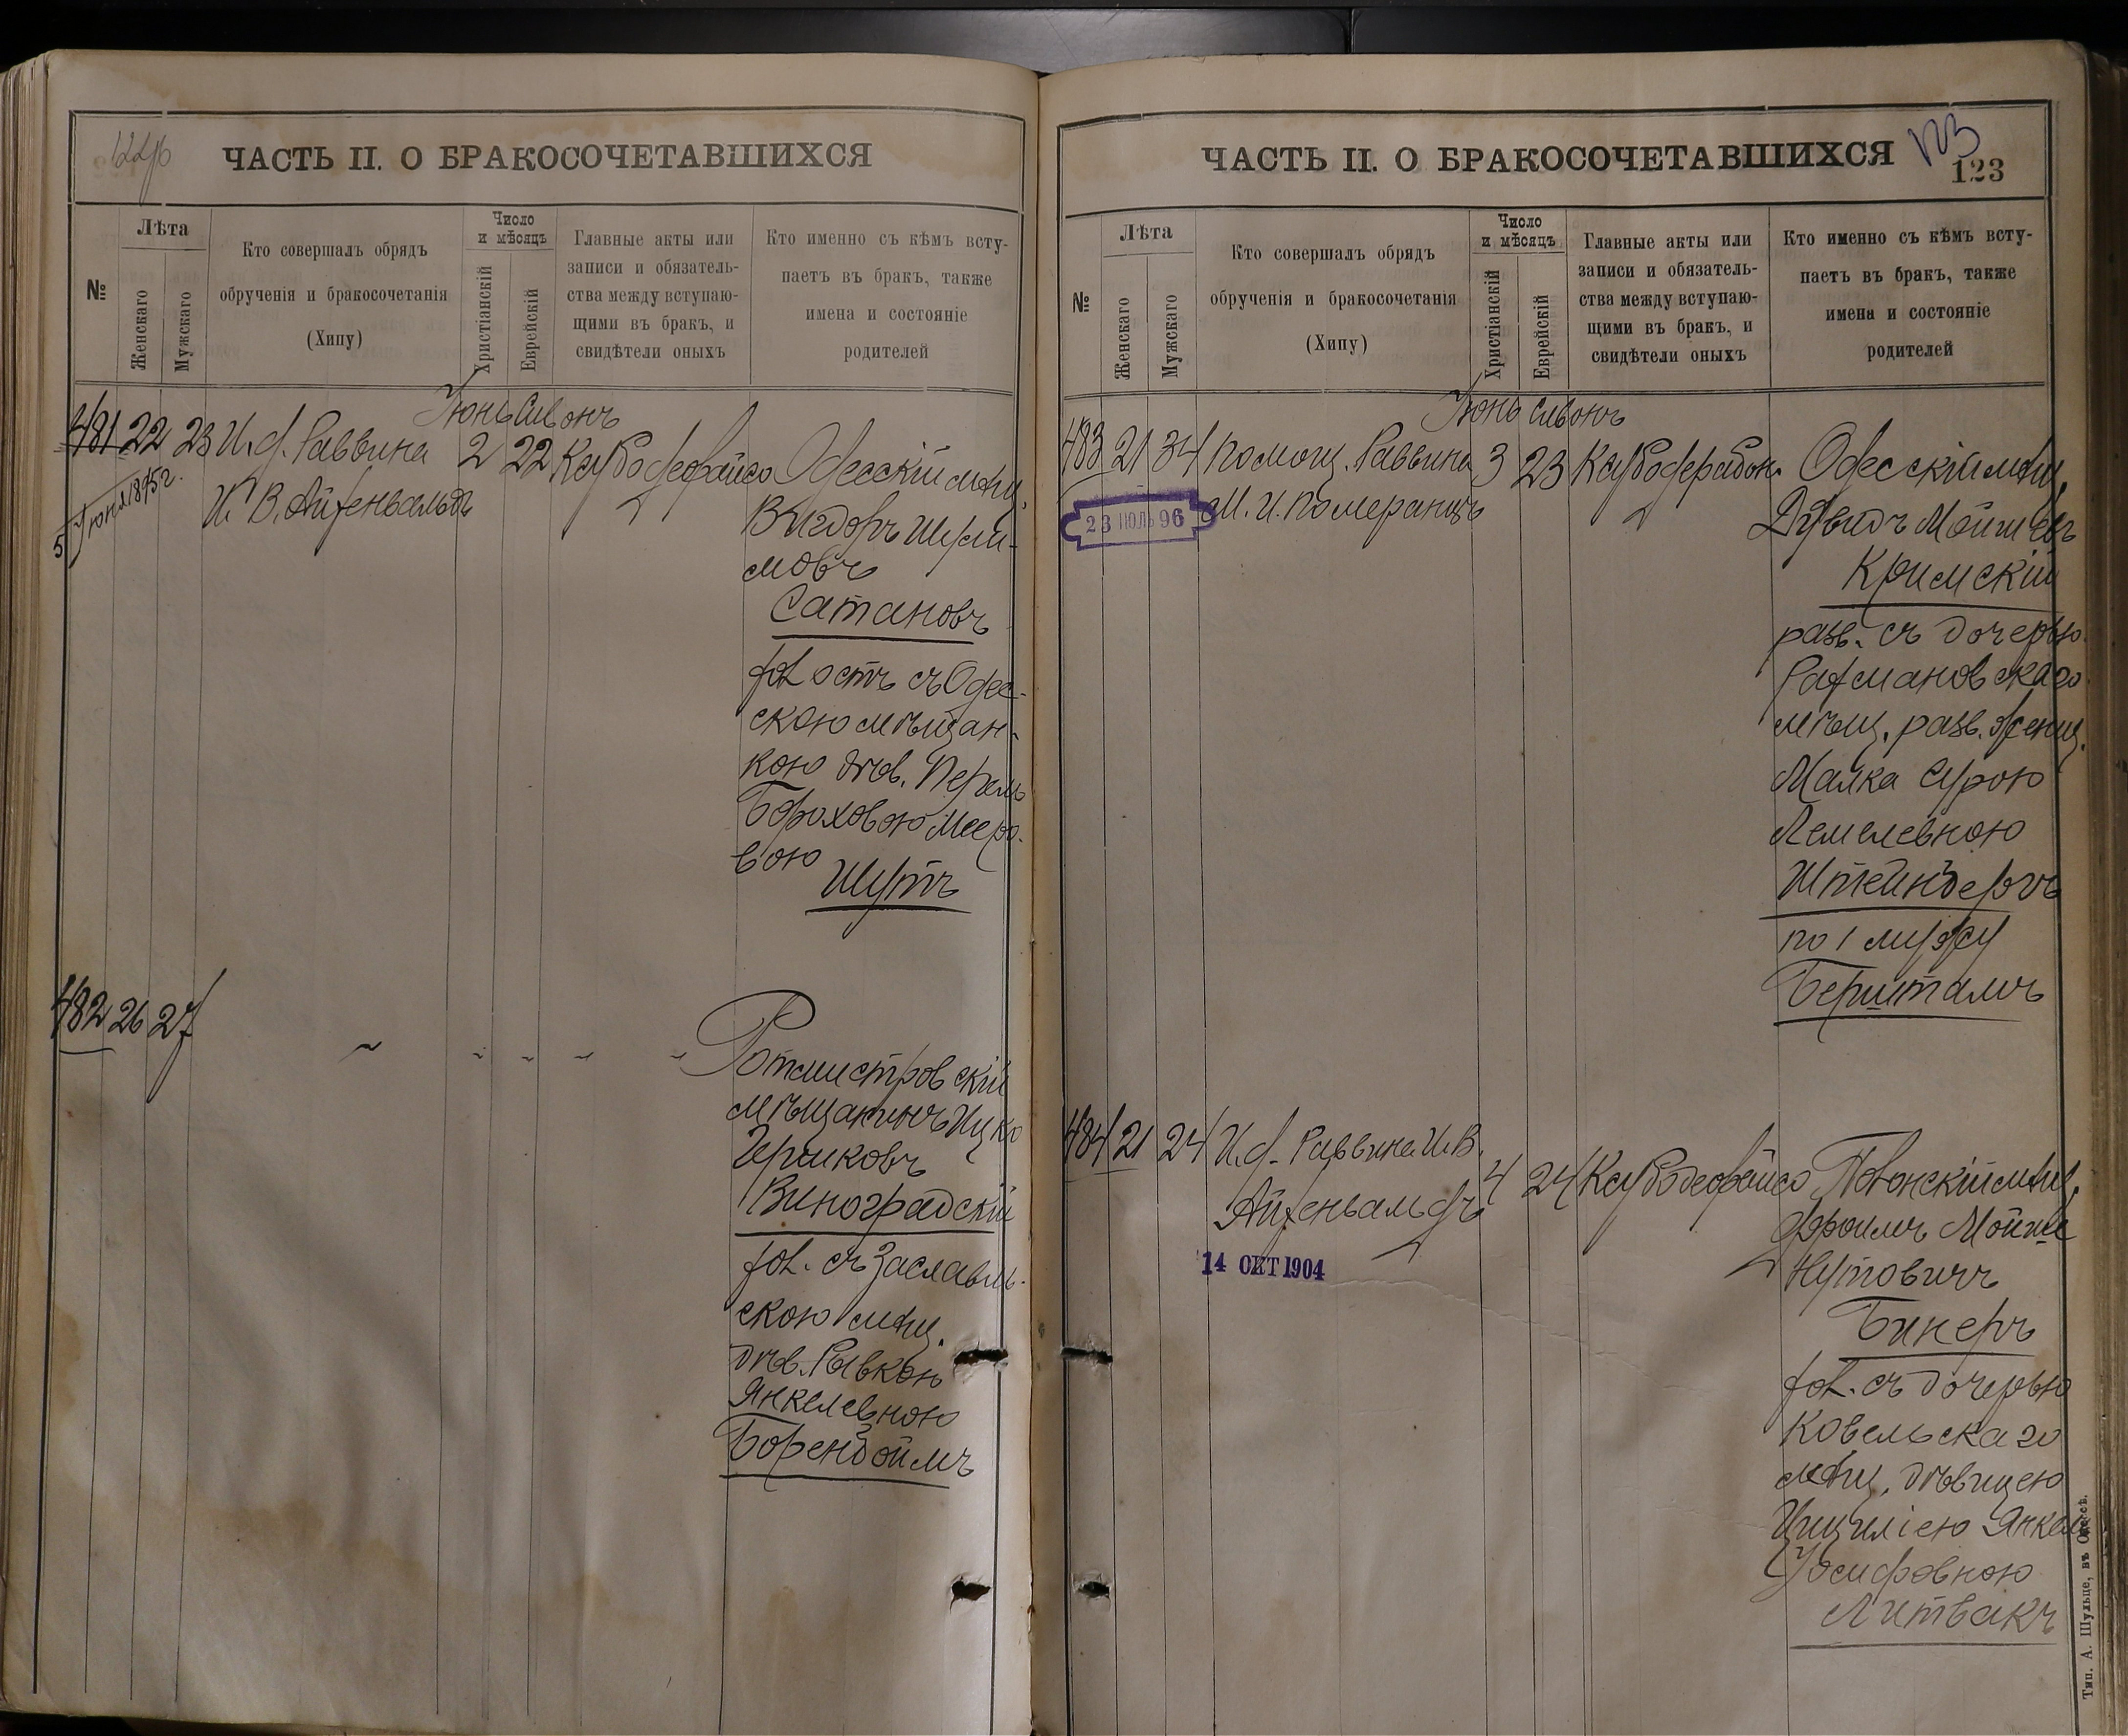 122об
ЧАСТЬ II. О БРАКОСОЧЕТАВШИХСЯ
№
Лѣта
Женскаго
Мужскаго
Кто совершалъ обрядъ
обрученія и бракосочетанія
(Хипу)
Число
и мѣсяцъ
Христіанскій
Еврейскій
Главные акты или
записи и обязатель-
ства между вступаю-
щими въ бракъ, и
свидѣтели оныхъ
Кто именно съ кѣмъ всту-
паетъ въ бракъ, также
имена и состояніе
родителей
Іюнь Сивонъ
481 22 23 И. д. Раввина 2 22 Одесскій мѣщ.
И. В. Айхенвальдъ
5 Іюня 1895 г.
Вигдоръ
мовъ
Сатановъ
хол остъ съ Одес-
скою мѣщан-
кою дѣв.
Бороховою Мееро-
вою
Шутъ
482 26 27
Ротмистровскій
мѣщанинъ Ицко
Гершковъ
Виноградскій
хол. съ Заславль-
скою мѣщ.
дѣв. Рывкою
Янкелевною
Боренбоймъ
ЧАСТЬ II. О БРАКОСОЧЕТАВШИХСЯ
123
123
№
Лѣта
Женскаго
Мужскаго
Кто совершалъ обрядъ
обрученія и бракосочетанія
(Хипу)
Число
и мѣсяцъ
Христіанскій
Еврейскій
Главные акты или
записи и обязатель-
ства между вступаю-
щими въ бракъ, и
свидѣтели оныхъ
Кто именно съ кѣмъ всту-
паетъ въ бракъ, также
имена и состояніе
родителей
Іюнь Сивонъ
483 21 34 Помощ. Раввина 3 23 Одесскій мѣщ.
М. И. Померанцъ
23 ИЮЛЬ 96
Дувидъ Мойшевъ
Кримскій
разв. съ дочерью
Рахмановскаго
мѣщ. разв. женщ.
Малка Сурою
Лемелевною
Штейнбергъ
по 1 мужу
Бернштамъ
484 21 24 И. д. Раввина И. В. 4 24
Айхенвальдъ
14 ОКТ 1904
Мойше
Нутовичъ
Бикеръ
хол. съ дочерью
Ковельскаго
мѣщ. дѣвицею
Цицилiею Янкель
Іосифовною
Литвакъ
Тип. А. Шульце, въ Одессѣ.